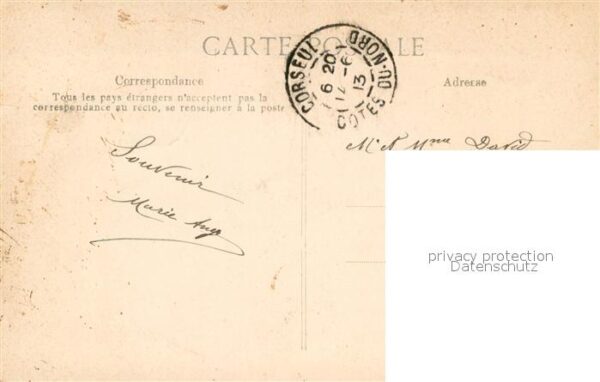 CARTE POSTALE
CORSEUL
6 20
14 - 6
13
COTES-DU-NORD
Correspondance
Tous les pays étrangers n'acceptent pas la
correspondance au recto, se renseigner à la poste
Adresse
Souvenir
Marie Ange
Mr et Mme David
privacy protection
Datenschutz